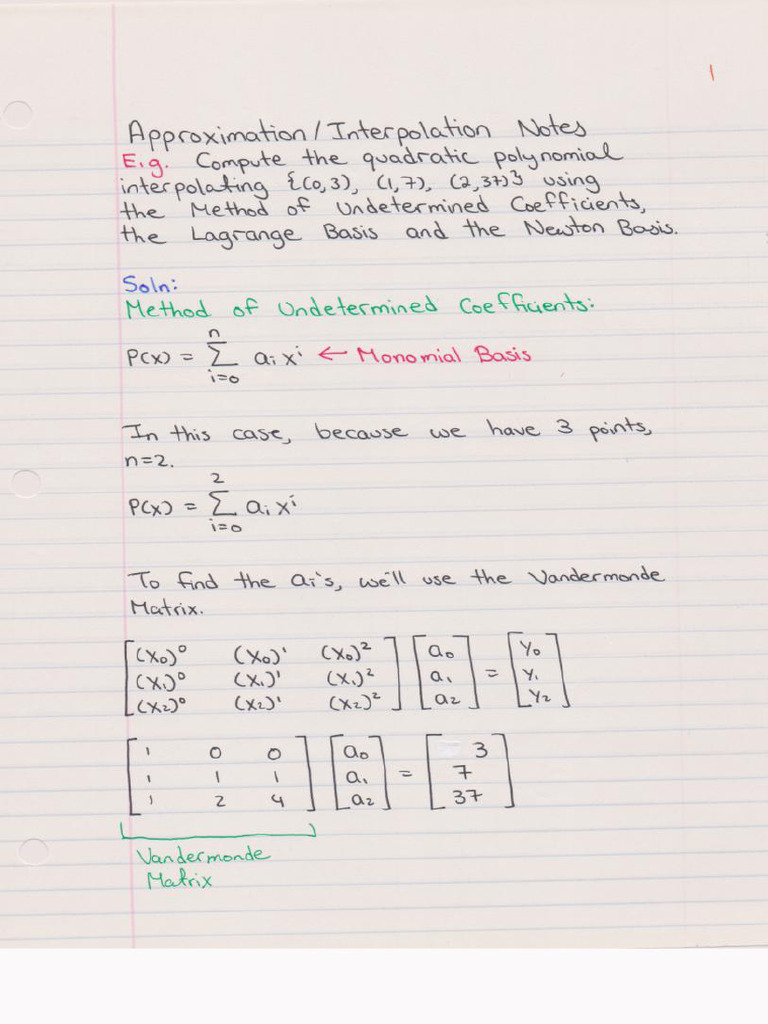 1
Approximation/Interpolation Notes
E.g. Compute the quadratic polynomial
interpolating {(0,3), (1,7), (2,37)} using
the Method of Undetermined Coefficients,
the Lagrange Basis and the Newton Basis.
Soln:
Method of Undetermined Coefficients:
n
P(x) = Σ aᵢ xⁱ ← Monomial Basis
i=0
In this case, because we have 3 points,
n=2.
2
P(x) = Σ aᵢ xⁱ
i=0
To find the aᵢ's, we'll use the Vandermonde
Matrix.
[(x₀)⁰ (x₀)¹ (x₀)²] [a₀] [y₀]
[(x₁)⁰ (x₁)¹ (x₁)²] [a₁] = [y₁]
[(x₂)⁰ (x₂)¹ (x₂)²] [a₂] [y₂]
[1 0 0] [a₀] [3]
[1 1 1] [a₁] = [7]
[1 2 4] [a₂] [37]
Vandermonde
Matrix